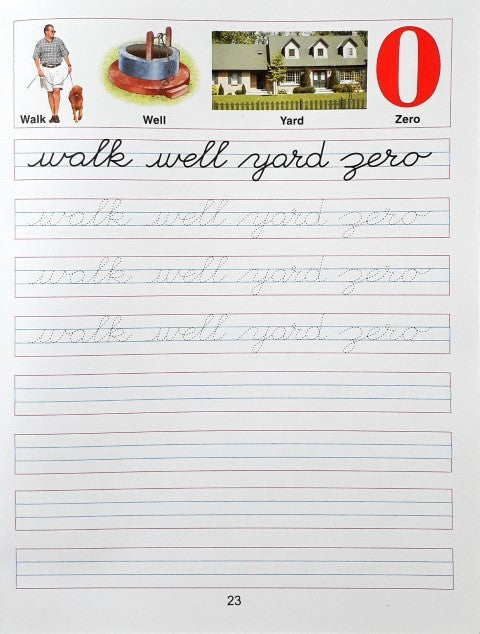 0
Walk Well Yard Zero
walk well yard zero
walk well yard zero
walk well yard zero
walk well yard zero
23